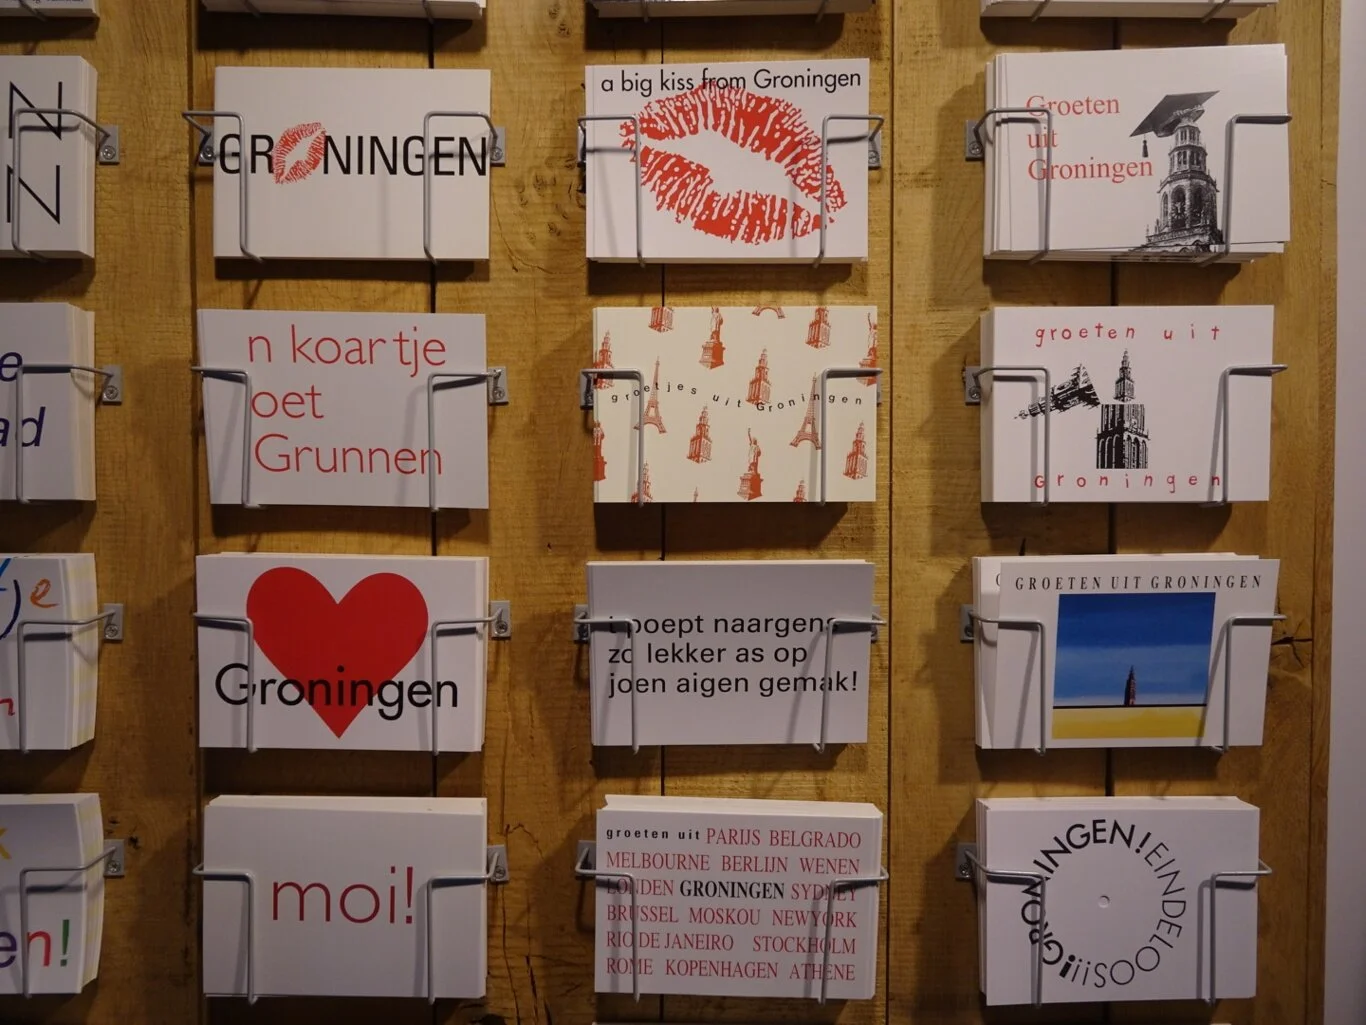 N
N
GRONINGEN
a big kiss from Groningen
Groeten
uit
Groningen
e
ad
n koartje
oet
Grunnen
groetjes uit Groningen
groeten uit
Groningen
tje
n
Groningen
t poept naargens
zo lekker as op
joen aigen gemak!
GROETEN UIT GRONINGEN
k
en!
moi!
groeten uit PARIJS BELGRADO
MELBOURNE BERLIJN WENEN
LONDEN GRONINGEN SYDNEY
BRUSSEL MOSKOU NEWYORK
RIO DE JANEIRO STOCKHOLM
ROME KOPENHAGEN ATHENE
GRONINGEN! EINDELOOS